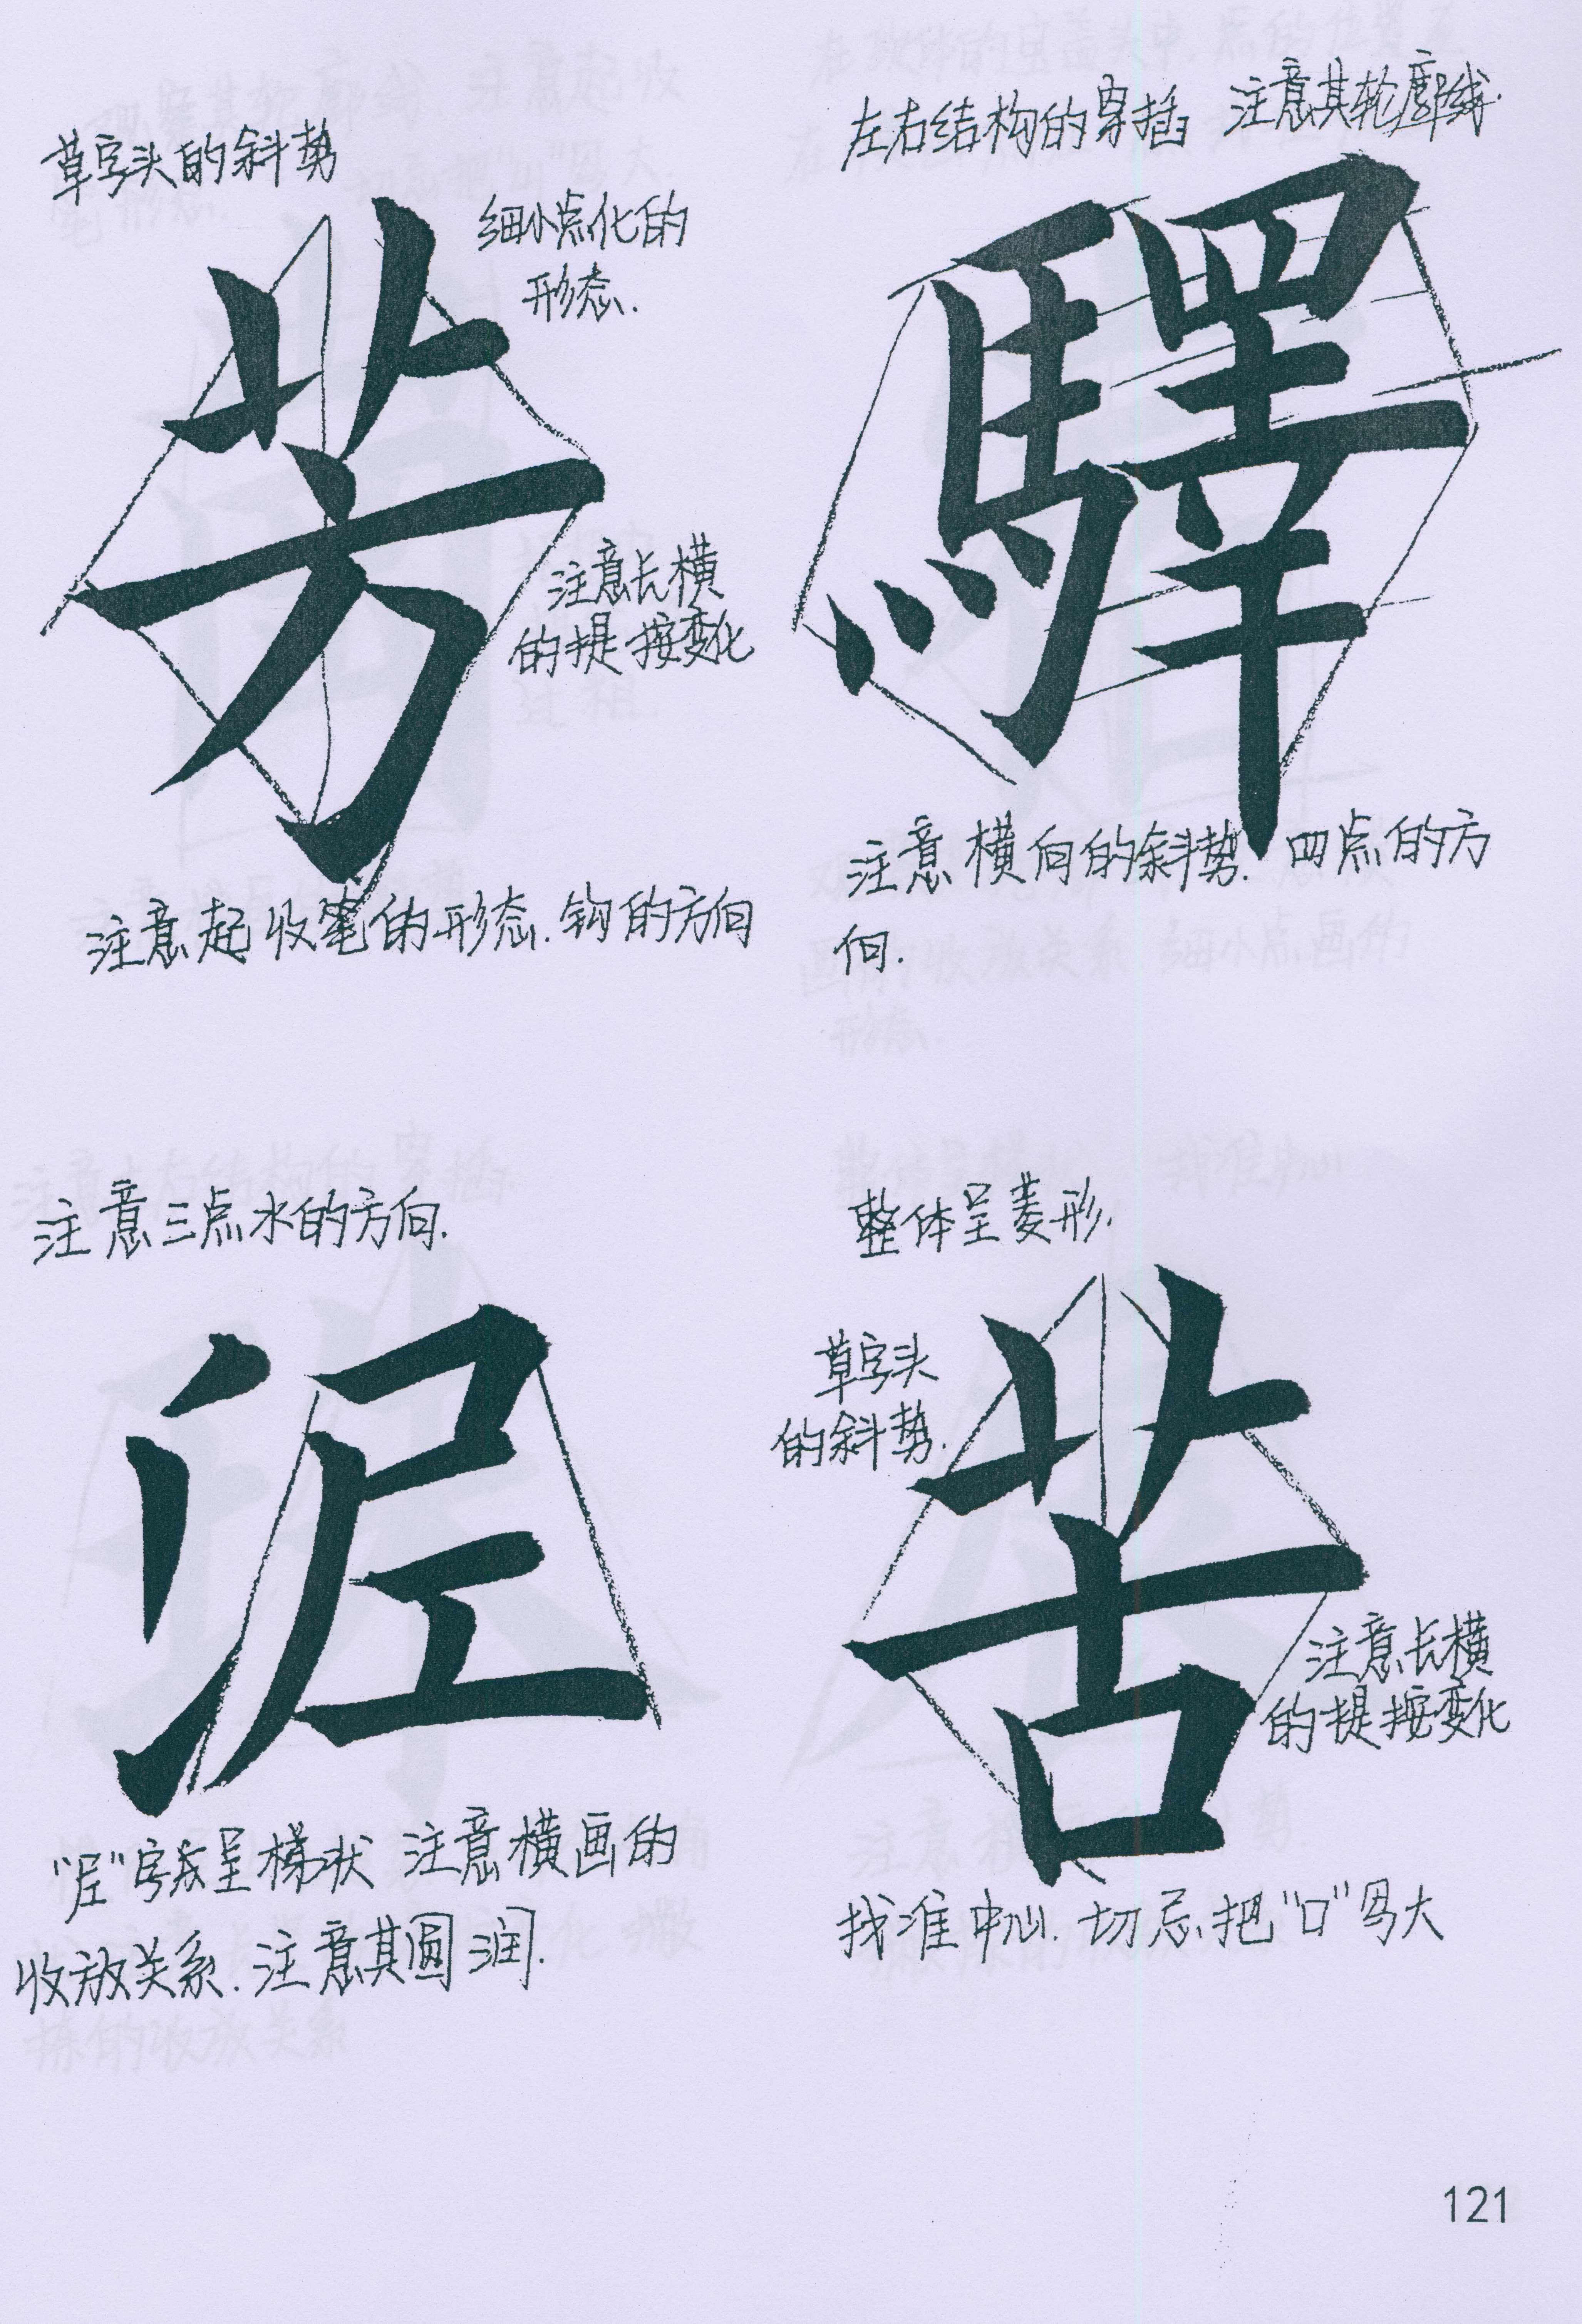 草字头的斜势
细小点化的
形态.
芳
注意长横
的提按变化
注意起收笔的形态.钩的方向
左右结构的穿插 注意其轮廓线.
驛
注意横向的斜势.四点的方
向.
注意三点水的方向.
泥
“尼”字态呈梯状 注意横画的
收放关系.注意其圆润.
整体呈菱形.
草字头
的斜势.
苦
注意长横
的提按变化
找准中心.切忌把“口”写大
121